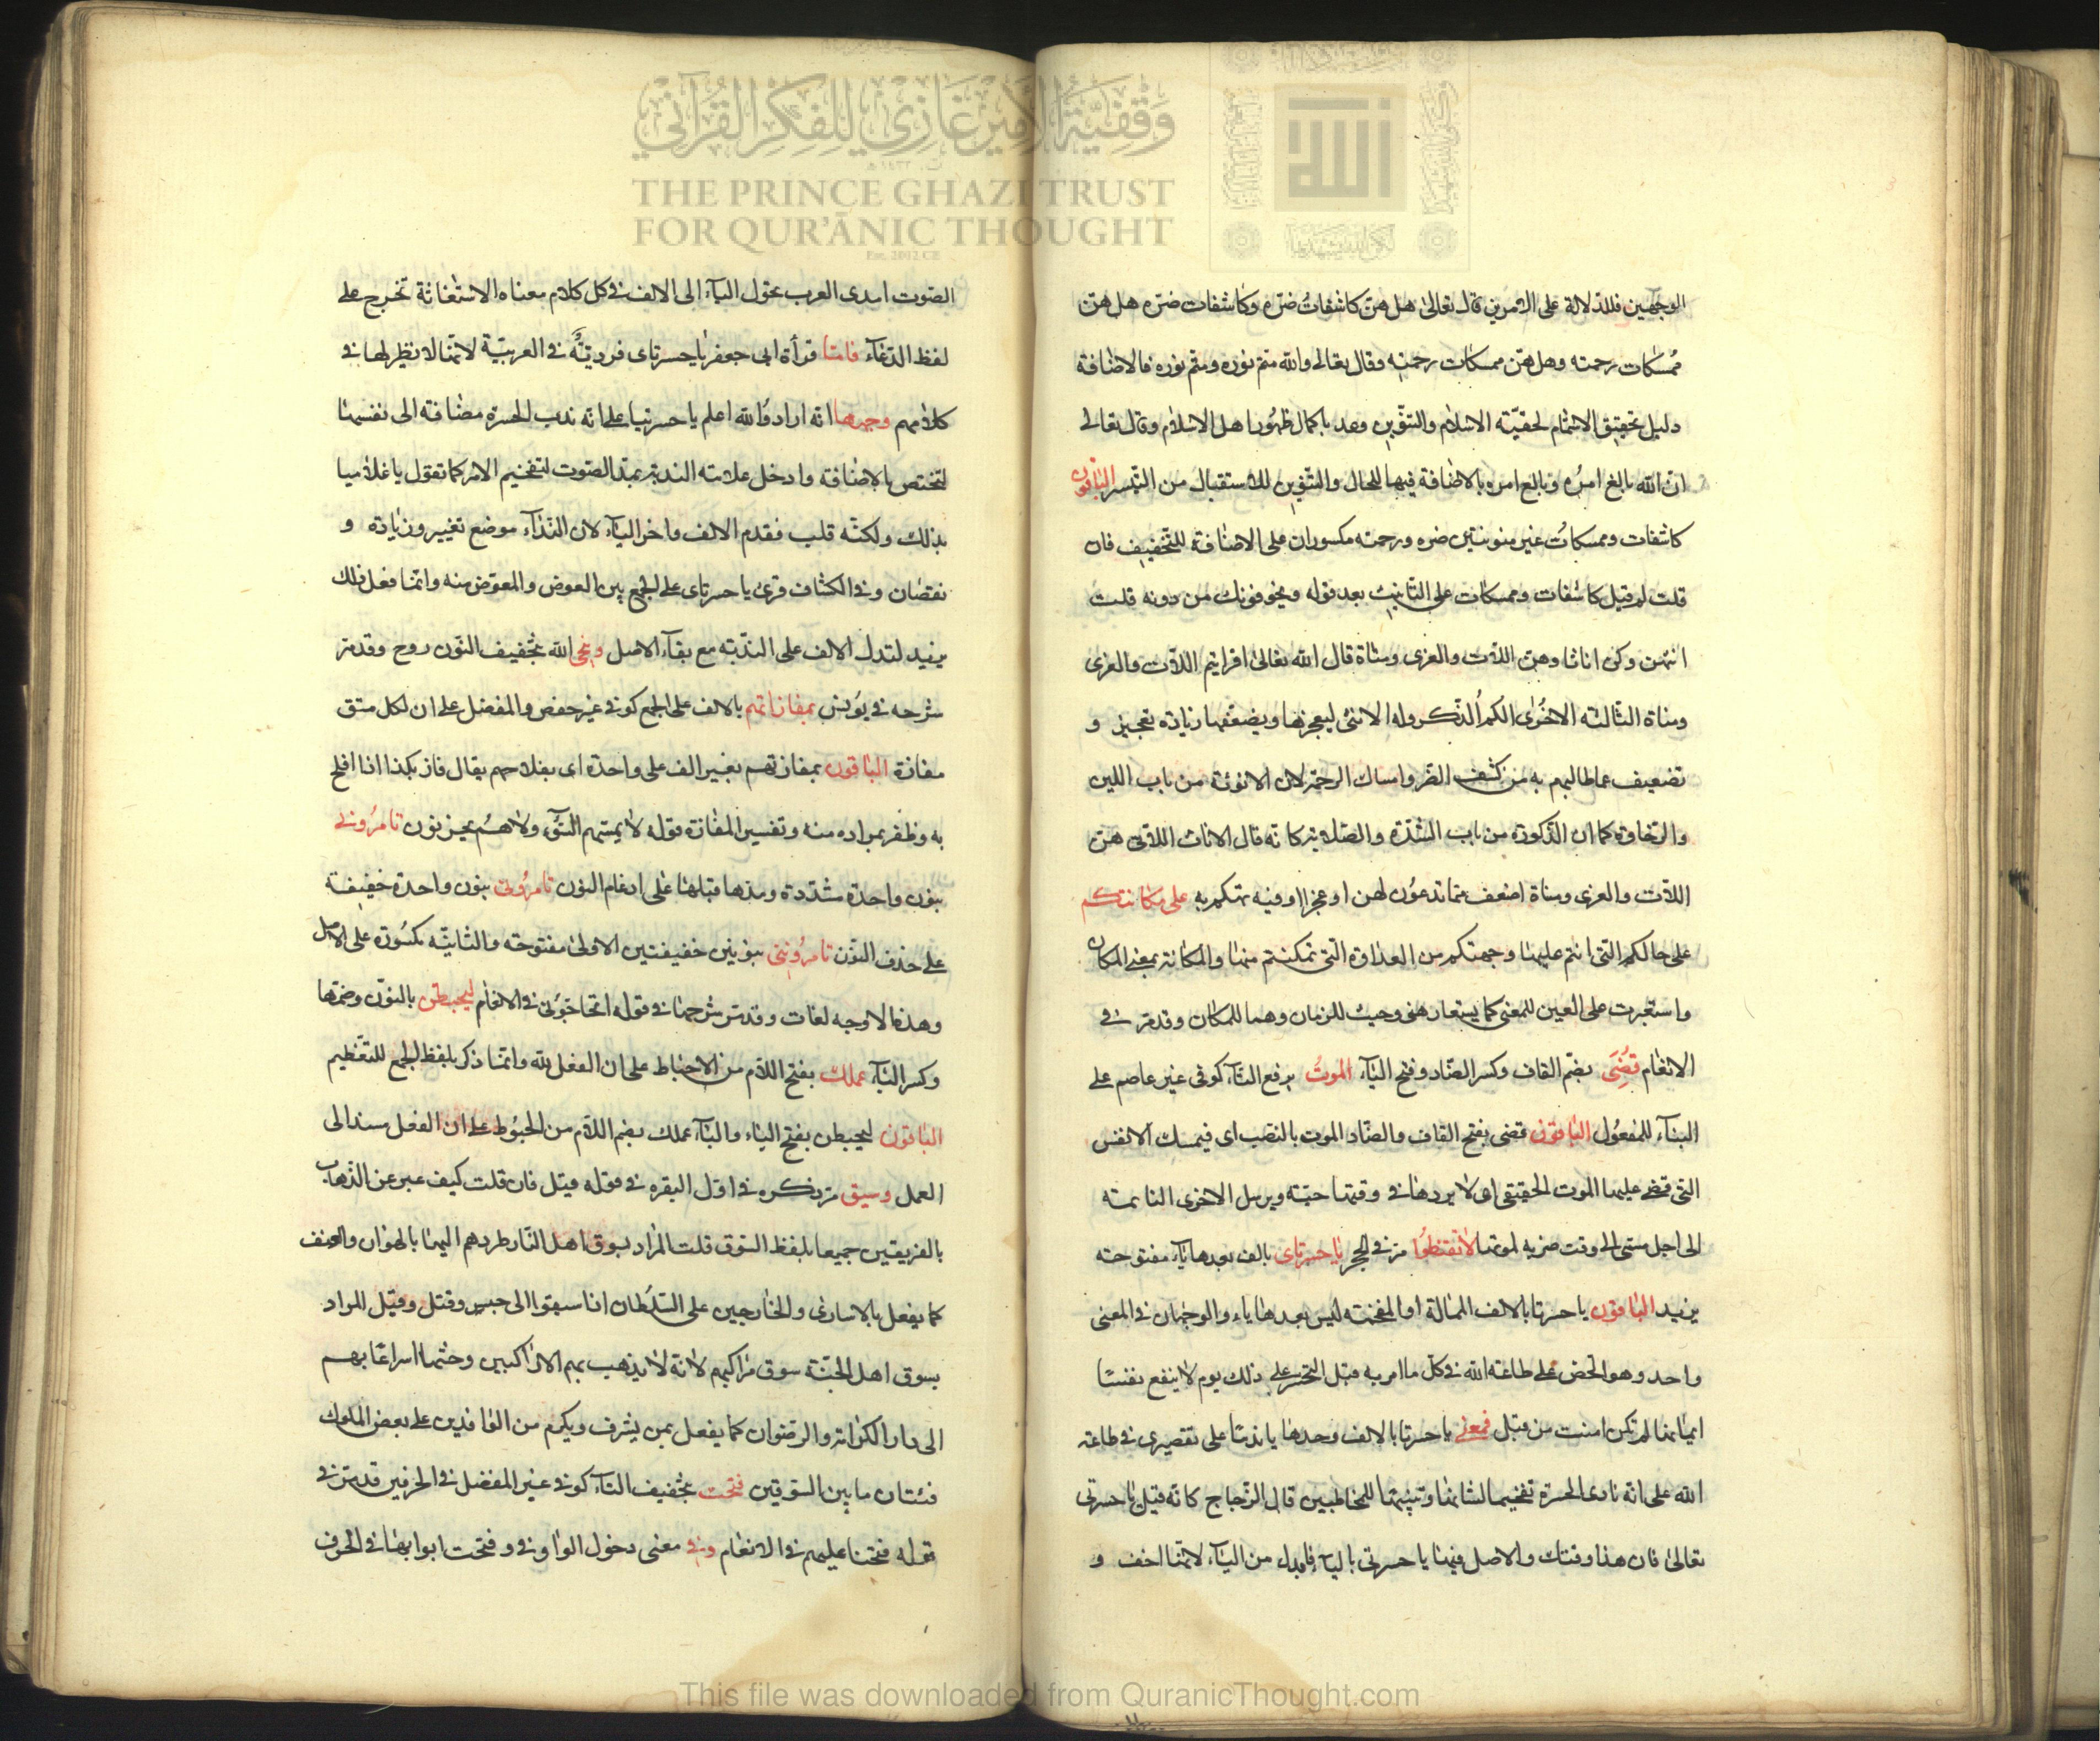 وقفية الأمير غازي للفكر القرآني
THE PRINCE GHAZI TRUST
FOR QUR'ĀNIC THOUGHT
Est. 2012 CE
الوجهين فللدلالة على الامرين قال تعالى هل هن كاشفات ضره وكاشفات ضره هل هن
ممسكات رحمته وهل هن ممسكات رحمته وقال تعالى والله متم نوره ومتم نوره فالاضافة
دليل تحقيق الاتمام لحقية الاسلام والتنوين وعد باكمال ظهور اهل الاسلام وقال تعالى
ان الله بالغ امره وبالغ امره بالاضافة فيها للحال والتنوين للاستقبال من التيسر الباقون
كاشفات وممسكات غير منونتين ضره ورحمته مكسوران على الاضافة للتخفيف فان
قلت لم قيل كاشفات وممسكات على التانيث بعد قوله ويخوفونك من دونه قلت
انهن وكن اناثا وهن اللات والعزى ومناة قال الله تعالى افرايتم اللات والعزى
ومناة الثالثه الاخرى الكم الذكر وله الانثى ليعجزها ويضعفها زيادة تعجيز و
تضعيف عما طالبهم به من كشف الضر وامساك الرحمة لان الانوثة من باب اللين
والرخاوة كما ان الذكورة من باب الشدة والصلابة كانه قال الاناث اللاتي هن
اللات والعزى ومناة اضعف مما تدعون لهن او عجزا وفيه تهكم به على مكانتكم
على حالكم التي انتم عليها وجهتكم من العداوة التي تمكنتم منها والمكانة بمعنى المكان
واستعيرت على العين للمعنى كما يستعار هنى وحيث للزمان وهما للمكان وقد مر في
الانعام قُضِىَ بضم القاف وكسر الضاد وفتح الياء الموت برفع التاء كوفى غير عاصم على
البناء للمفعول الباقون قضى بفتح القاف والضاد الموت بالنصب اى فيمسك الانفس
التي قضى عليها الموت الحقيقى اى لا يردها في وقتها حية ويرسل الاخرى النائمة
الى اجل مسمى الى وقت ضربه لموتها لا تقنطوا مر في الحجر يا حسرتاى بالف بعدها ياء مفتوحة
يزيد الباقون يا حسرتا بالالف الممالة او المفخمة ليس بعدها ياء والوجهان في المعنى
واحد وهو الحض على طاعة الله في كل ما امر به قبل التحسر على ذلك يوم لا ينفع نفسا
ايمانها لم تكن امنت من قبل فمعنى يا حسرتا بالالف وحدها يا ندما على تقصيرى في طاعة
الله على انه نادى الحسرة تفخيما لشانها وتنبيها للمخاطبين قال الزجاج كانه قيل يا حسرتى
تعالى فان هذا وقتك والاصل فيها يا حسرتى بالياء فابدل من الياء لانها اخف و
الصوت اسدى العرب تحول الياء الى الالف في كل كلام معناه الاستغاثة تخرج على
لفظ الدعاء فاما قرأة ابى جعفر يا حسرتاى فردية في العربية لانها لا نظير لها في
كلامهم وجهها انه اراد والله اعلم يا حسرتيا على انه ندب الحسرة مضافة الى نفسها
لتختص بالاضافة وادخل علامة الندبة بمد الصوت لتفخيم الامر كما تقول يا غلاميا
بذلك ولكنه قلب فقدم الالف واخر الياء لان النداء موضع تغيير وزيادة و
نقصان وفي الكشاف قرئ يا حسرتاى على الجمع بين العوض والمعوض منه وانما فعل ذلك
يزيد لتدل الالف على الندبة مع بقاء الاصل وينجى الله بتخفيف النون روح وقد مر
شرحه في يونس بمفازاتهم بالالف على الجمع كوفى غير حفص والمفضل على ان لكل متق
مفازة الباقون بمفازتهم بغير الف على واحدة اى بفلاحهم يقال فاز بكذا اذا افلح
به وظفر بمراده منه وتفسير المفازة قوله لا يمسهم السوء ولا هم يحزنون تامرونى
بنون واحدة مشددة ومدها قبلها على ادغام النون تامرونى بنون واحدة خفيفة
على حذف النون تامروننى بنونين خفيفتين الاولى مفتوحة والثانية مكسورة على الاصل
وهذه الاوجه لغات وقد مر شرحها في قوله اتحاجونى في الانعام ليحبطن بالنون وضمها
وكسر الباء عملك بفتح اللام من الاحباط على ان الفعل لله وانما ذكر بلفظ الجمع للتعظيم
الباقون ليحبطن بفتح الياء والباء عملك بضم اللام من الحبوط على ان الفعل مسند الى
العمل وسيق مر ذكره في اول البقره في قوله قيل فان قلت كيف عبر عن الذهاب
بالفريقين جميعا بلفظ السوق قلت المراد بسوق اهل النار طردهم اليها بالهوان والعنف
كما يفعل بالاسارى والخارجين على السلطان اذا سيقوا الى حبس وقتل وقيل المراد
بسوق اهل الجنة سوق مراكبهم لانه لا يذهب بهم الا راكبين وحثها اسراعا بهم
الى دار الكرامة والرضوان كما يفعل بمن يشرف ويكرم من الوافدين على بعض الملوك
فشتان ما بين السوقين فتحت بتخفيف التاء كوفى غير المفضل في الحرفين قد مر في
قوله فتحنا عليهم في الانعام وفي معنى دخول الواو في وفتحت ابوابها في الحرف
This file was downloaded from QuranicThought.com